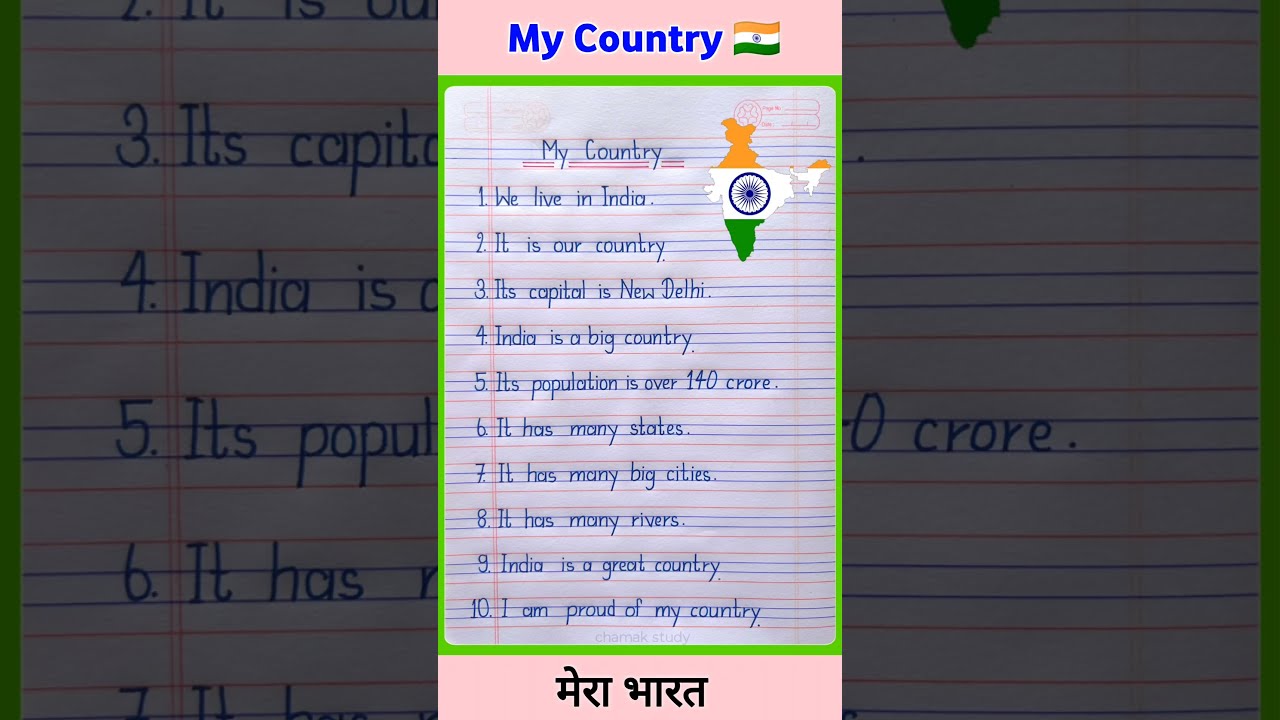 My Country 🇮🇳
My Country
1. We live in India.
2. It is our country.
3. Its capital is New Delhi.
4. India is a big country.
5. Its population is over 140 crore.
6. It has many states.
7. It has many big cities.
8. It has many rivers.
9. India is a great country.
10. I am proud of my country.
chamak study
मेरा भारत